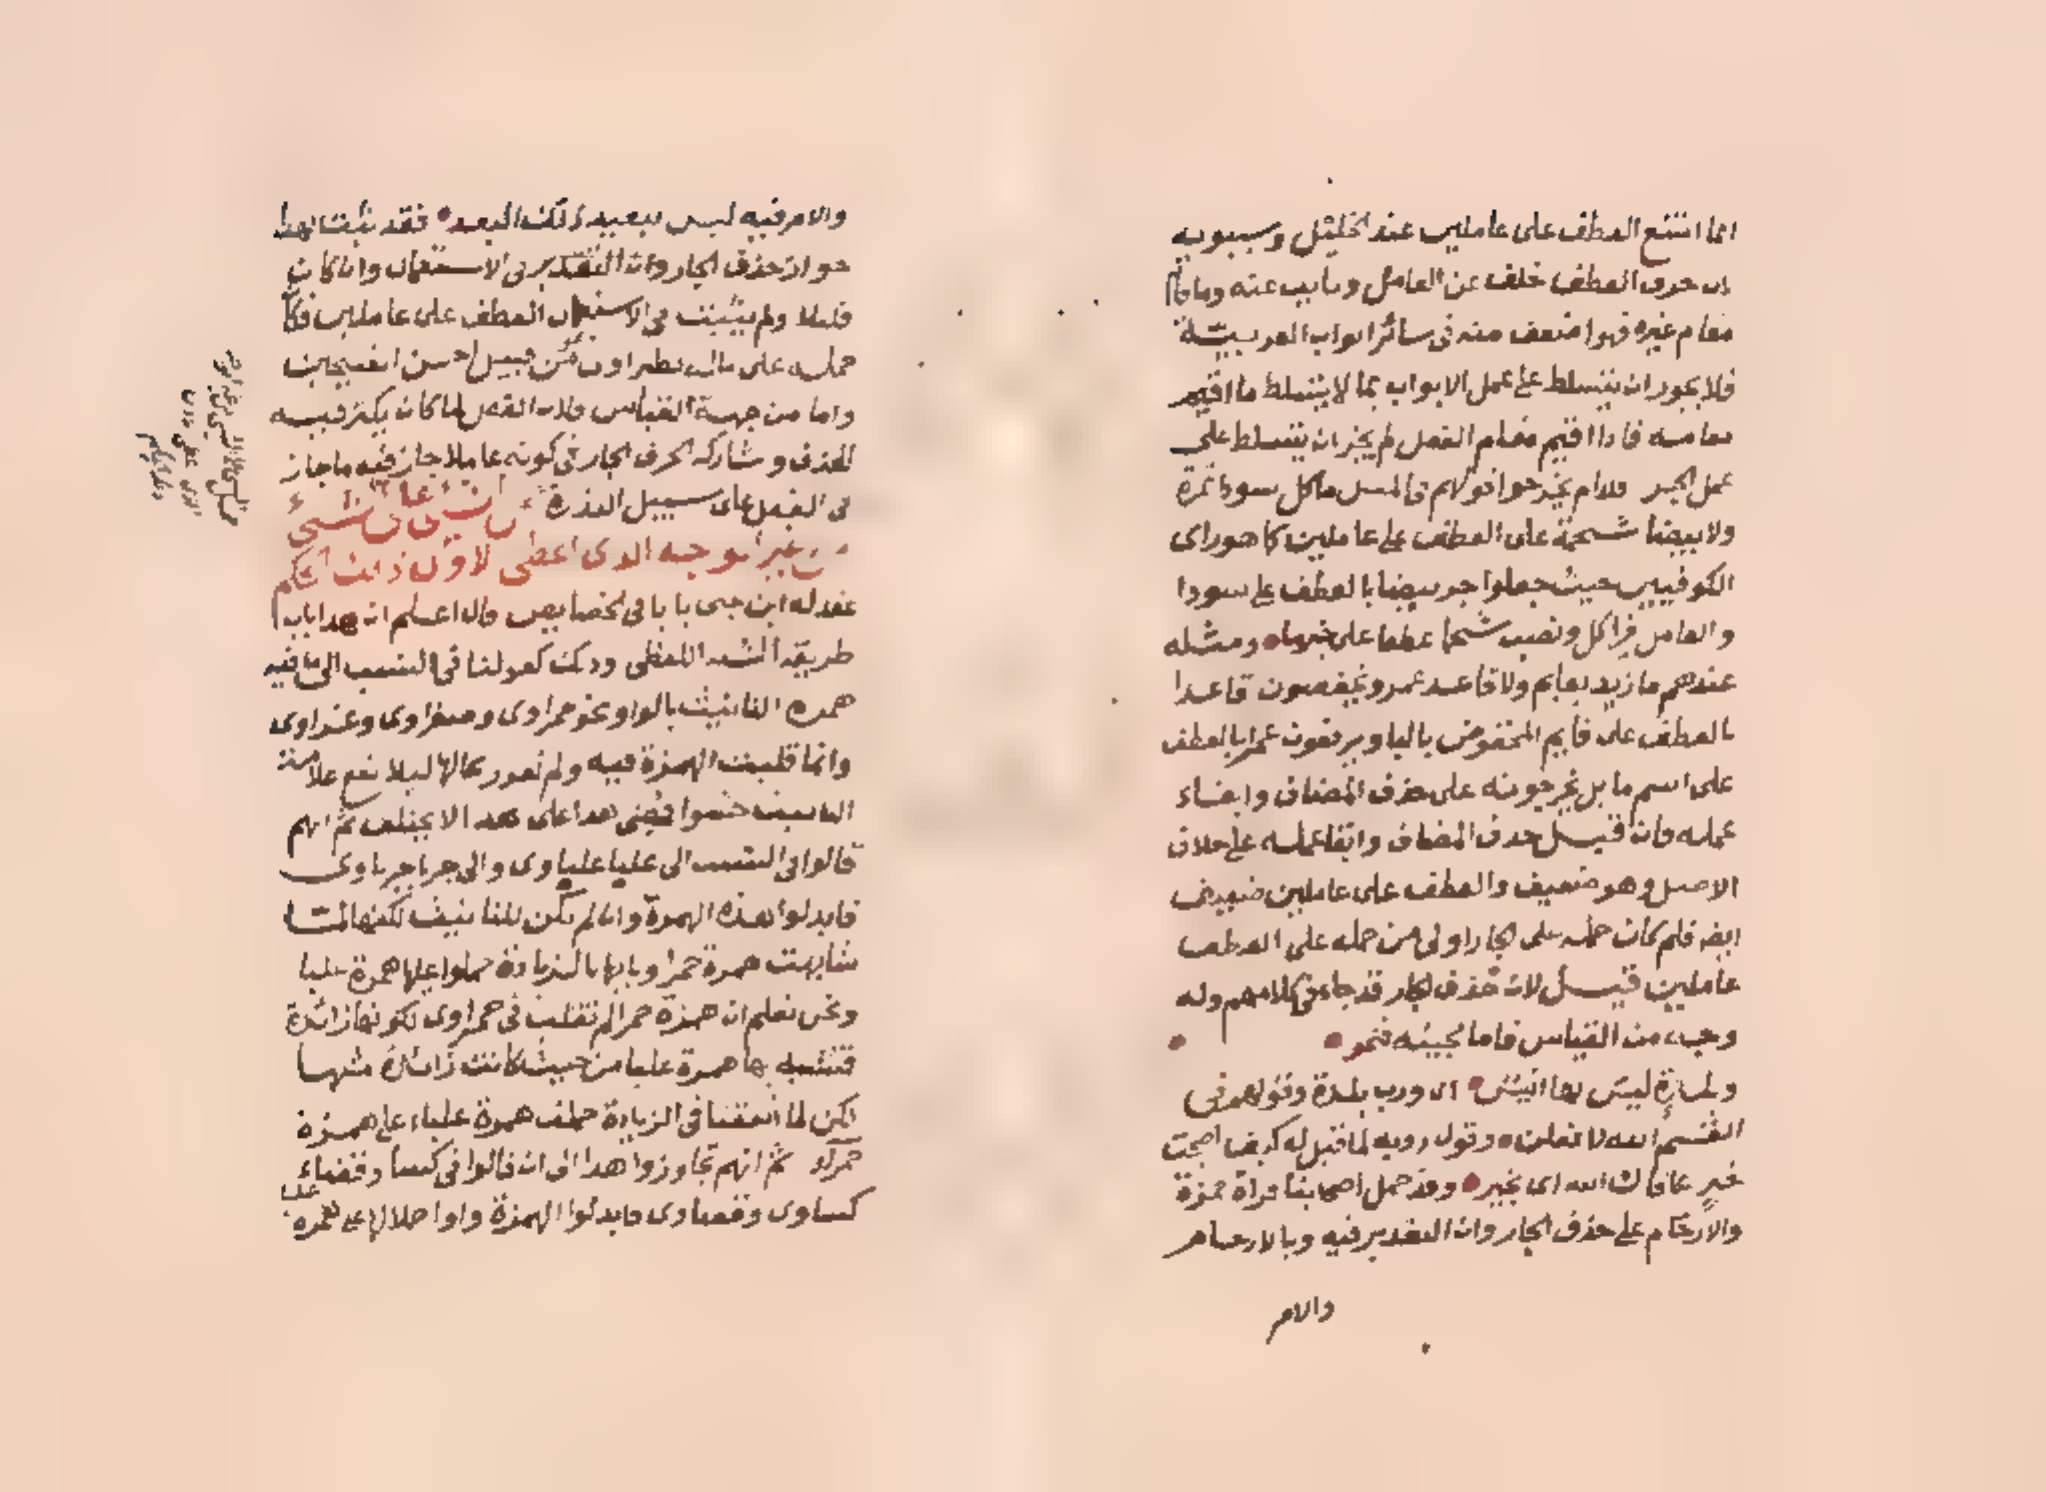 انما امتنع العطف على عاملين عند الخليل وسيبويه
لان حرف العطف خلف عن العامل ونايب عنه وما قام
مقام غيره فهو اضعف منه فى سائر ابواب العربية
فلا يجوز ان يتسلط على عمل الابواب بما لا يتسلط ما اقيم
مقامه فاذا اقيم مقام الفعل لم يجز ان يتسلط على
عمل الجر فلذا لم يخرجوا قولهم فى المثل ما كل سودا تمرة
ولا بيضا شحمة على العطف على عاملين كما هو راى
الكوفيين حيث جعلوا جر بيضا بالعطف على سودا
والعامل فيها كل ونصب شحما عطفا على خبر ما ومثله
عندهم ما زيد بقايم ولا قاعد عمرو يخفضون قاعدا
بالعطف على قايم المخفوض بالبا ويرفعون عمرا بالعطف
على اسم ما بل يخرجونه على حذف المضاف وابقاء
عمله فان قيل حذف المضاف وابقا عمله على خلاف
الاصل وهو ضعيف والعطف على عاملين ضعيف
ايضا فلم كان حمله على الجار اولى من حمله على العطف
عاملين قيل لان حذف الجار قد جاء فى كلامهم وله
وجه من القياس فاما مجيئه فنحو
وبلدة ليس بها انيس اى ورب بلدة وقولهم فى
القسم الله لا فعلن وقول روبة لما قيل له كيف اصبحت
خير عافاك الله اى بخير وقد حمل اصحابنا قراة حمزة
والارحام على حذف الجار وان التقدير فيه وبالارحام
والامر
والامر فيه ليس ببعيد ذلك البعد فقد ثبت بهذا
جواز حذف الجار وان التقدير فى الاستعمال وان كان
قليلا ولم يثبت فى الاستعمال العطف على عاملين فكان
حمله على ماله نظير اولى من قبيل احسن القبيحين
واما من جهة القياس فلان الفعل لما كان يكثر فيه
الحذف وشاركه الحرف الجار فى كونه عاملا جاز فيه ما جاز
فى الفعل على سبيل الندرة
غير الوجه الذى اعطى الاول ذلك الحكم
عقد له ابن جنى بابا فى الخصايص قال اعلم ان هذا باب
طريقه الشبه اللفظى وذلك كقولنا فى النسب الى ما فيه
همزة التانيث بالواو نحو حمراوى وصفراوى وعشراوى
وانما قلبت الهمزة فيه ولم تقر بحالها ليلا تقع علامة
التانيث حشوا فمضى هذا على هذا لا يختلف ثم انهم
قالوا فى النسب الى عليا علياوى والى حربا حرباوى
فابدلوا هذه الهمزة وان لم تكن للتانيث لكنها لما
شابهت همزة حمرا وبابها بالزيادة حملوا عليها همزة عليا
ونحن نعلم ان همزة حمرا لم تقلب فى حمراوى لكونها زائدة
فتشبه بها همزة عليا من حيث كانت زائدة مثلها
لكن لما اتفقتا فى الزيادة حملت همزة علياء على همزة
حمراء ثم انهم تجاوزوا هذا الى ان قالوا فى كسا وقضاء
كساوى وقضاوى فابدلوا الهمزة واوا حملا لها على همزة